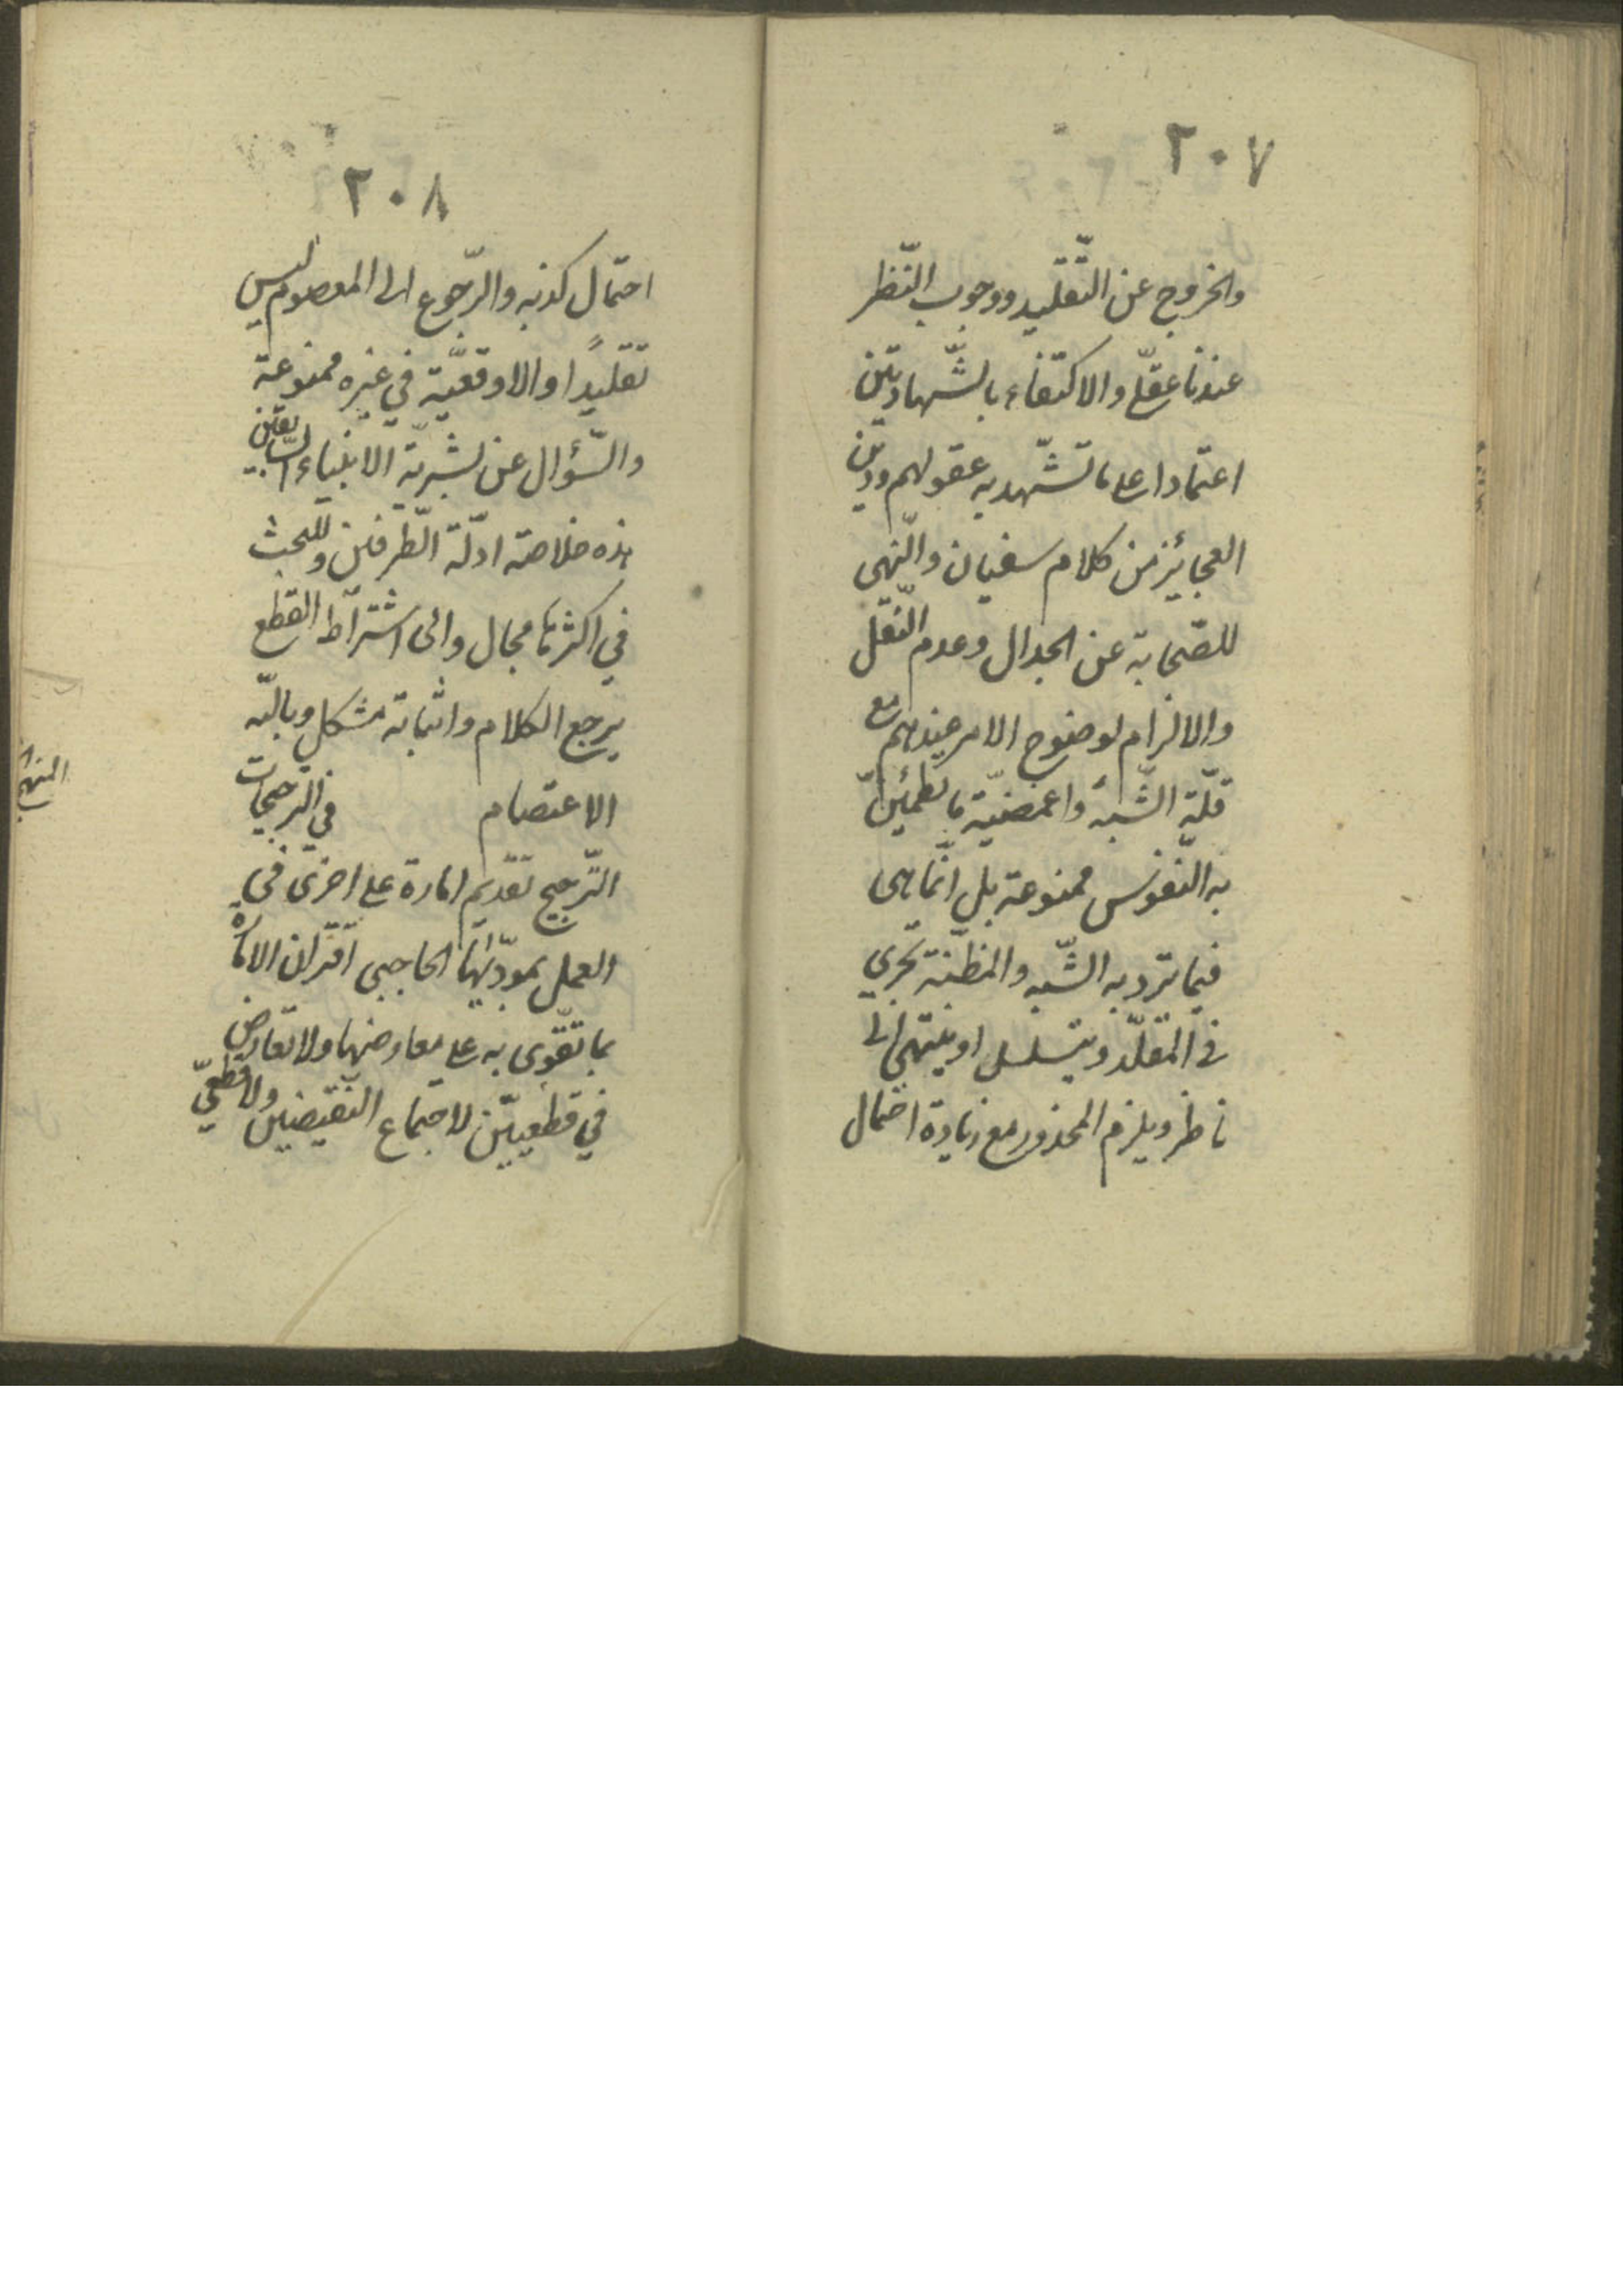 ٢٠٧
والخروج عن التّقليد ووجوب النّظر
عندنا عقلي والاكتفاء بالشّهادتين
اعتمادا على ما تشهد به عقولهم ودين
العجائز من كلام سفيان والنّهى
للصّحابة عن الجدال وعدم النّقل
والالزام لوضوح الامر عندهم مع
قلّة الشّبه واغمضيّة ما يطمئنّ
به النّفوس ممنوعة بل انّما هى
فيما ترد به الشّبه والمظنّة تجري
فى المقلّد ويتسلسل او ينتهى الى
ناظر ويلزم المحذور مع زيادة احتمال
٢٠٨
احتمال كذبه والرّجوع الى المعصوم ليس
تقليدًا والاوقعيّة في غيره ممنوعة
والسّؤال عن بشريّة الانبياء السّابقين
هذه خلاصة ادلّة الطّرفين وللبحث
في اكثرها مجال والى اشتراط القطع
يرجع الكلام واثباته مشكل وباللّه
الاعتصام في الترجيحات
المنهج
التّرجيح تقديم امارة على اخرى في
العمل بمودّاها الحاجبى اقتران الامارة
بما تقوّى به على معارضها ولا تعارض
في قطعيّين لاجتماع النّقيضين ولا قطعيّ